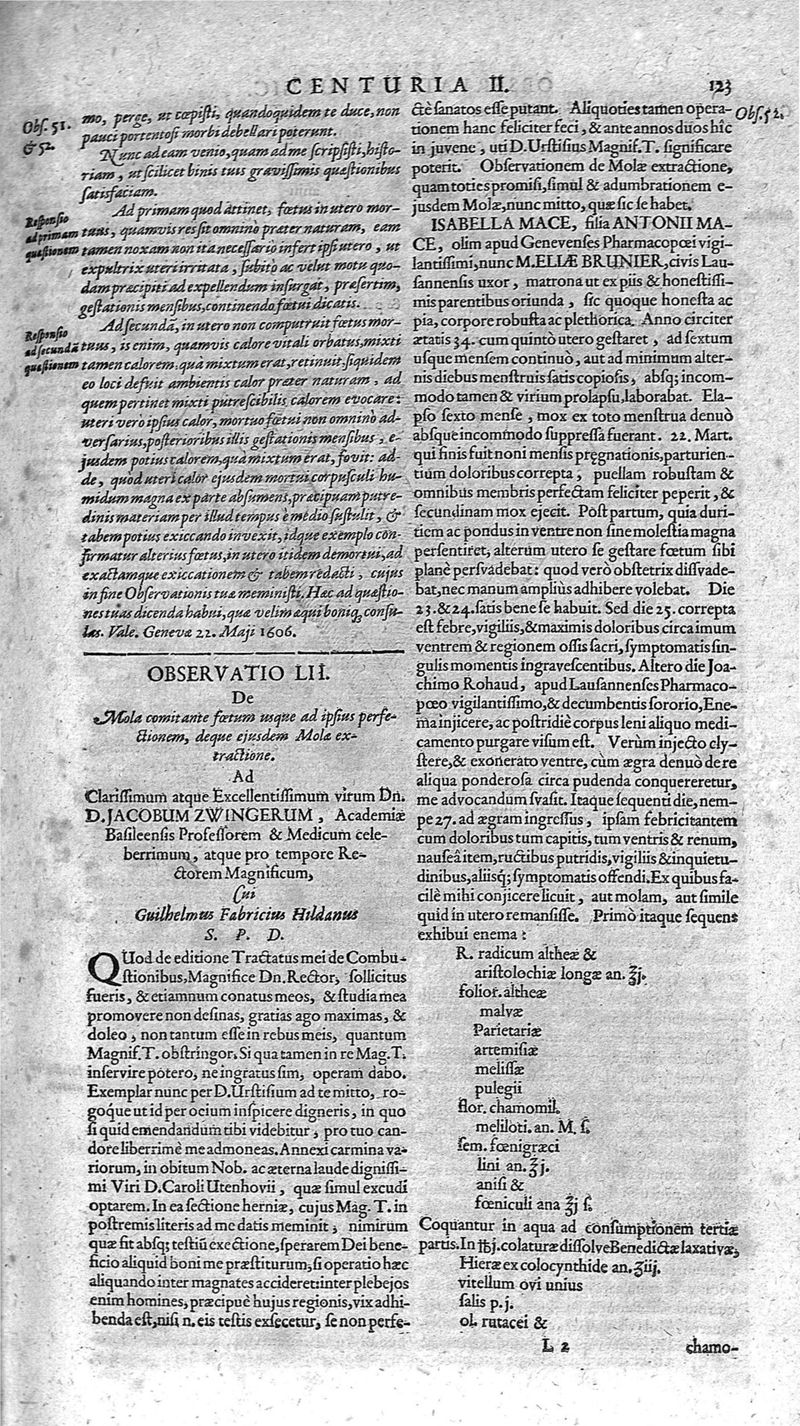 CENTURIA II. 123
Obs. 51.
& 52.
mo, perge, ut cœpisti, quandoquidem te duce, non
pauci portentosi morbi debellari poterunt.
Nunc ad eam venio, quam ad me scripsisti, histo-
riam, ut scilicet binis tuis gravissimis quæstionibus
satisfaciam.
Responsio
ad primam
quæstionem
Ad primam quod attinet, fœtus in utero mor-
tuus, quamvis res sit omninò præter naturam, eam
tamen noxam non ita necessario infert ipsi utero, ut
expultrix uteri irritata, subitò ac velut motu quo-
dam præcipiti ad expellendum insurgat, præsertim,
gestationis mensibus, continendo fœtui dicatis.
Responsio
ad secundā
quæstionem
Ad secundā, in utero non computruit fœtus mor-
tuus, is enim, quamvis calore vitali orbatus, mixti
tamen calorem, quà mixtum erat, retinuit, siquidem
eo loci defuit ambientis calor præter naturam, ad
quem pertinet mixti putrescibilis calorem evocare:
uteri vero ipsius calor, mortuo fœtui non omninò ad-
versarius, posterioribus illis gestationis mensibus, e-
jusdem potius calorem, quà mixtum erat, fovit: ad-
de, quòd uteri calor ejusdem mortui corpusculi hu-
midum magna ex parte absumens, præcipuam putre-
dinis materiam per illud tempus è medio sustulit, &
tabem potius exiccando invexit, idque exemplo con-
firmatur alterius fœtus, in utero itidem demortui, ad
exactamque exiccationem & tabem redacti, cujus
in fine Observationis tuæ meministi. Hæc ad quæstio-
nes tuas dicenda habui, quæ velim æqui boniq; consu-
las. Vale. Genevæ 22. Maji 1606.
OBSERVATIO LII.
De
Mola comitante fœtum usque ad ipsius perfe-
ctionem, deque ejusdem Molæ ex-
tractione.
Ad
Clarissimum atque Excellentissimum virum Dn.
D. JACOBUM ZWINGERUM, Academiæ
Basileensis Professorem & Medicum cele-
berrimum, atque pro tempore Re-
ctorem Magnificum,
Cui
Guilhelmus Fabricius Hildanus
S. P. D.
QUod de editione Tractatus mei de Combu-
stionibus, Magnifice Dn. Rector, sollicitus
fueris, & etiamnum conatus meos, & studia mea
promovere non desinas, gratias ago maximas, &
doleo, non tantum esse in rebus meis, quantum
Magnif. T. obstringor. Si qua tamen in re Mag. T.
inservire potero, ne ingratus sim, operam dabo.
Exemplar nunc per D. Urstisium ad te mitto, ro-
goque ut id per ocium inspicere digneris, in quo
si quid emendandum tibi videbitur, pro tuo can-
dore liberrimè me admoneas. Annexi carmina va-
riorum, in obitum Nob. ac æterna laude dignissi-
mi Viri D. Caroli Utenhovii, quæ simul excudi
optarem. In ea sectione herniæ, cujus Mag. T. in
postremis literis ad me datis meminit, nimirum
quæ fit absq; testiū exectione, sperarem Dei bene-
ficio aliquid boni me præstiturum, si operatio hæc
aliquando inter magnates accideret: inter plebejos
enim homines, præcipuè hujus regionis, vix adhi-
benda est, nisi n. eis testis exsecetur, se non perfe-
ctè sanatos esse putant. Aliquoties tamen opera-
Obs. 52.
tionem hanc feliciter feci, & ante annos duos hîc
in juvene, uti D. Urstisius Magnif. T. significare
poterit. Observationem de Molæ extractione,
quam toties promisi, simul & adumbrationem e-
jusdem Molæ, nunc mitto, quæ sic se habet.
ISABELLA MACE, filia ANTONII MA-
CE, olim apud Genevenses Pharmacopœi vigi-
lantissimi, nunc M. ELIÆ BRUNIER, civis Lau-
sannensis uxor, matrona ut ex piis & honestissi-
mis parentibus oriunda, sic quoque honesta ac
pia, corpore robusta ac plethorica. Anno circiter
ætatis 34. cum quintò utero gestaret, ad sextum
usque mensem continuò, aut ad minimum alter-
nis diebus menstruis satis copiosis, absq; incom-
modo tamen & virium prolapsu, laborabat. Ela-
pso sexto mense, mox ex toto menstrua denuò
absque incommodo suppressa fuerant. 22. Mart.
qui finis fuit noni mensis prægnationis, parturien-
tium doloribus correpta, puellam robustam &
omnibus membris perfectam feliciter peperit, &
secundinam mox ejecit. Post partum, quia duri-
tiem ac pondus in ventre non sine molestia magna
persentiret, alterum utero se gestare fœtum sibi
planè persvadebat: quod verò obstetrix dissvade-
bat, nec manum amplius adhibere volebat. Die
23. & 24. satis bene se habuit. Sed die 25. correpta
est febre, vigiliis, & maximis doloribus circa imum
ventrem & regionem ossis sacri, symptomatis sin-
gulis momentis ingravescentibus. Altero die Joa-
chimo Rohaud, apud Lausannenses Pharmaco-
pœo vigilantissimo, & decumbentis sororio, Ene-
ma injicere, ac postridiè corpus leni aliquo medi-
camento purgare visum est. Verùm injecto cly-
stere, & exonerato ventre, cùm ægra denuò de re
aliqua ponderosa circa pudenda conquereretur,
me advocandum svasit. Itaque sequenti die, nem-
pe 27. ad ægram ingressus, ipsam febricitantem
cum doloribus tum capitis, tum ventris & renum,
nauseâ item, ructibus putridis, vigiliis & inquietu-
dinibus, aliisq; symptomatis offendi. Ex quibus fa-
cilè mihi conjicere licuit, aut molam, aut simile
quid in utero remansisse. Primò itaque sequens
exhibui enema:
R. radicum altheæ &
aristolochiæ longæ an. ℥j.
folior. altheæ
malvæ
Parietariæ
artemisiæ
melissæ
pulegii
flor. chamomil.
meliloti. an. M. ſ.
sem. fœnigræci
lini an. ℥j.
anisi &
fœniculi ana ℥j ſ.
Coquantur in aqua ad consumptionem tertiæ
partis. In ℔j. colaturæ dissolve Benedictæ laxativæ,
Hieræ ex colocynthide an. ʒiij.
vitellum ovi unius
salis p. j.
ol. rutacei &
L 2 chamo-